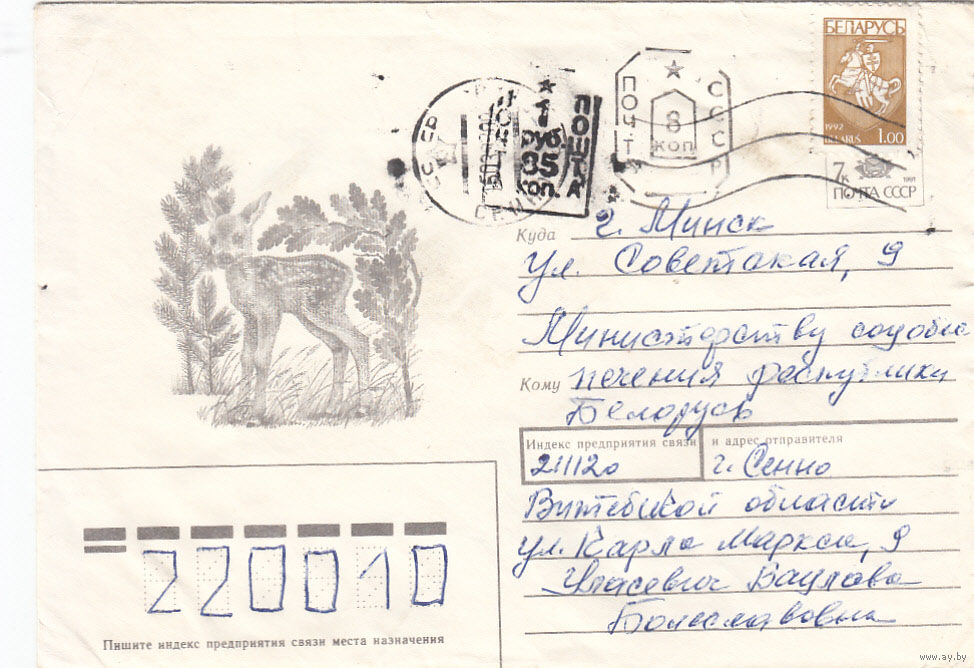 БЕЛАРУСЬ
1992
BELARUS
1.00
7к
1991
ПОЧТА СССР
ПОЧТА
СССР
8
коп
1
руб.
85
коп.
ПОШТА
СССР
Куда г. Минск
ул. Советская, 9
Министерству соцобес
Кому печения республики
Белорусь
Индекс предприятия связи и адрес отправителя
211120 г. Сенно
Витебской области
ул. Карла Маркса, 9
Болеславовна
220010
Пишите индекс предприятия связи места назначения
www.ay.by